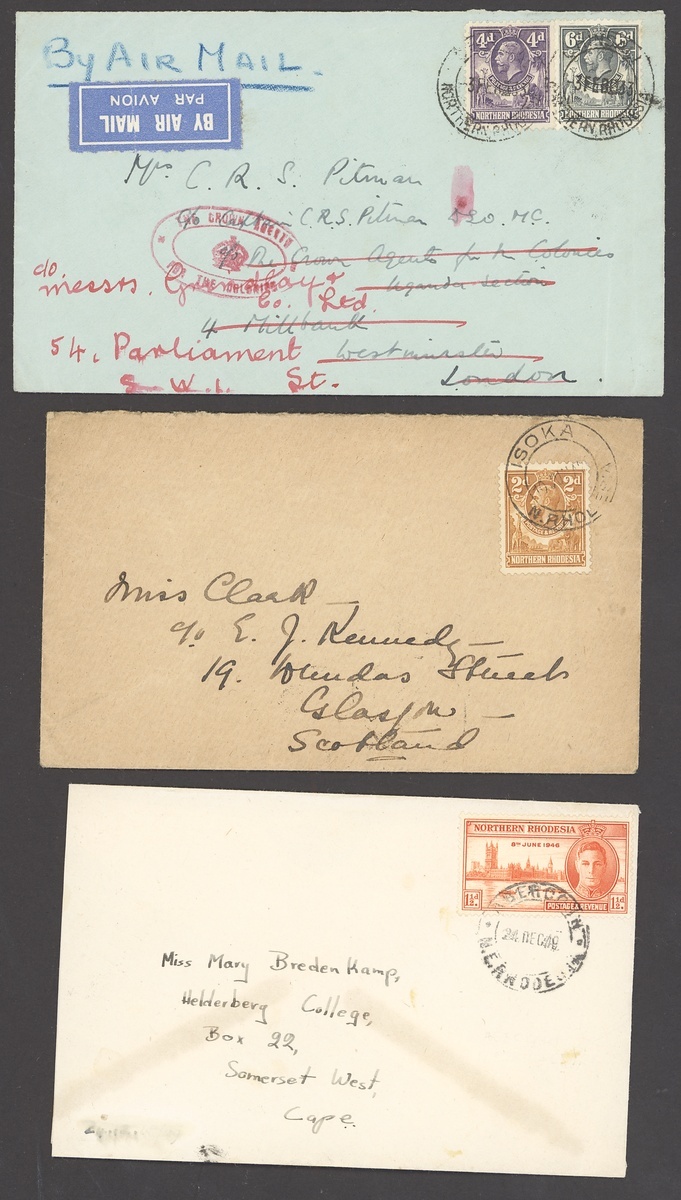 By Air Mail.
BY AIR MAIL
PAR AVION
4d 4d
NORTHERN RHODESIA
6d 6d
NORTHERN RHODESIA
3 FEB
NORTHERN RHODESIA
Mrs C. R. S. Pitman
c/o Captain C.R.S. Pitman DSO. MC.
THE CROWN AGENTS
FOR THE COLONIES
The Crown Agents for the Colonies
c/o
Messrs. Grindlay &
Uganda Section
Co. Ltd
4 Millbank
54, Parliament Westminster
S.W.1. St. London.
ISOKA
N. RHOD
2d 2d
NORTHERN RHODESIA
Miss Clark
c/o E. J. Kennedy
19. Dundas Street
Glasgow
Scotland
NORTHERN RHODESIA
8TH JUNE 1946
1½d. POSTAGE & REVENUE 1½d.
ABERCORN
24 DEC 49
N.E. RHODESIA
Miss Mary Bredenkamp,
Helderberg College,
Box 22,
Somerset West,
Cape.